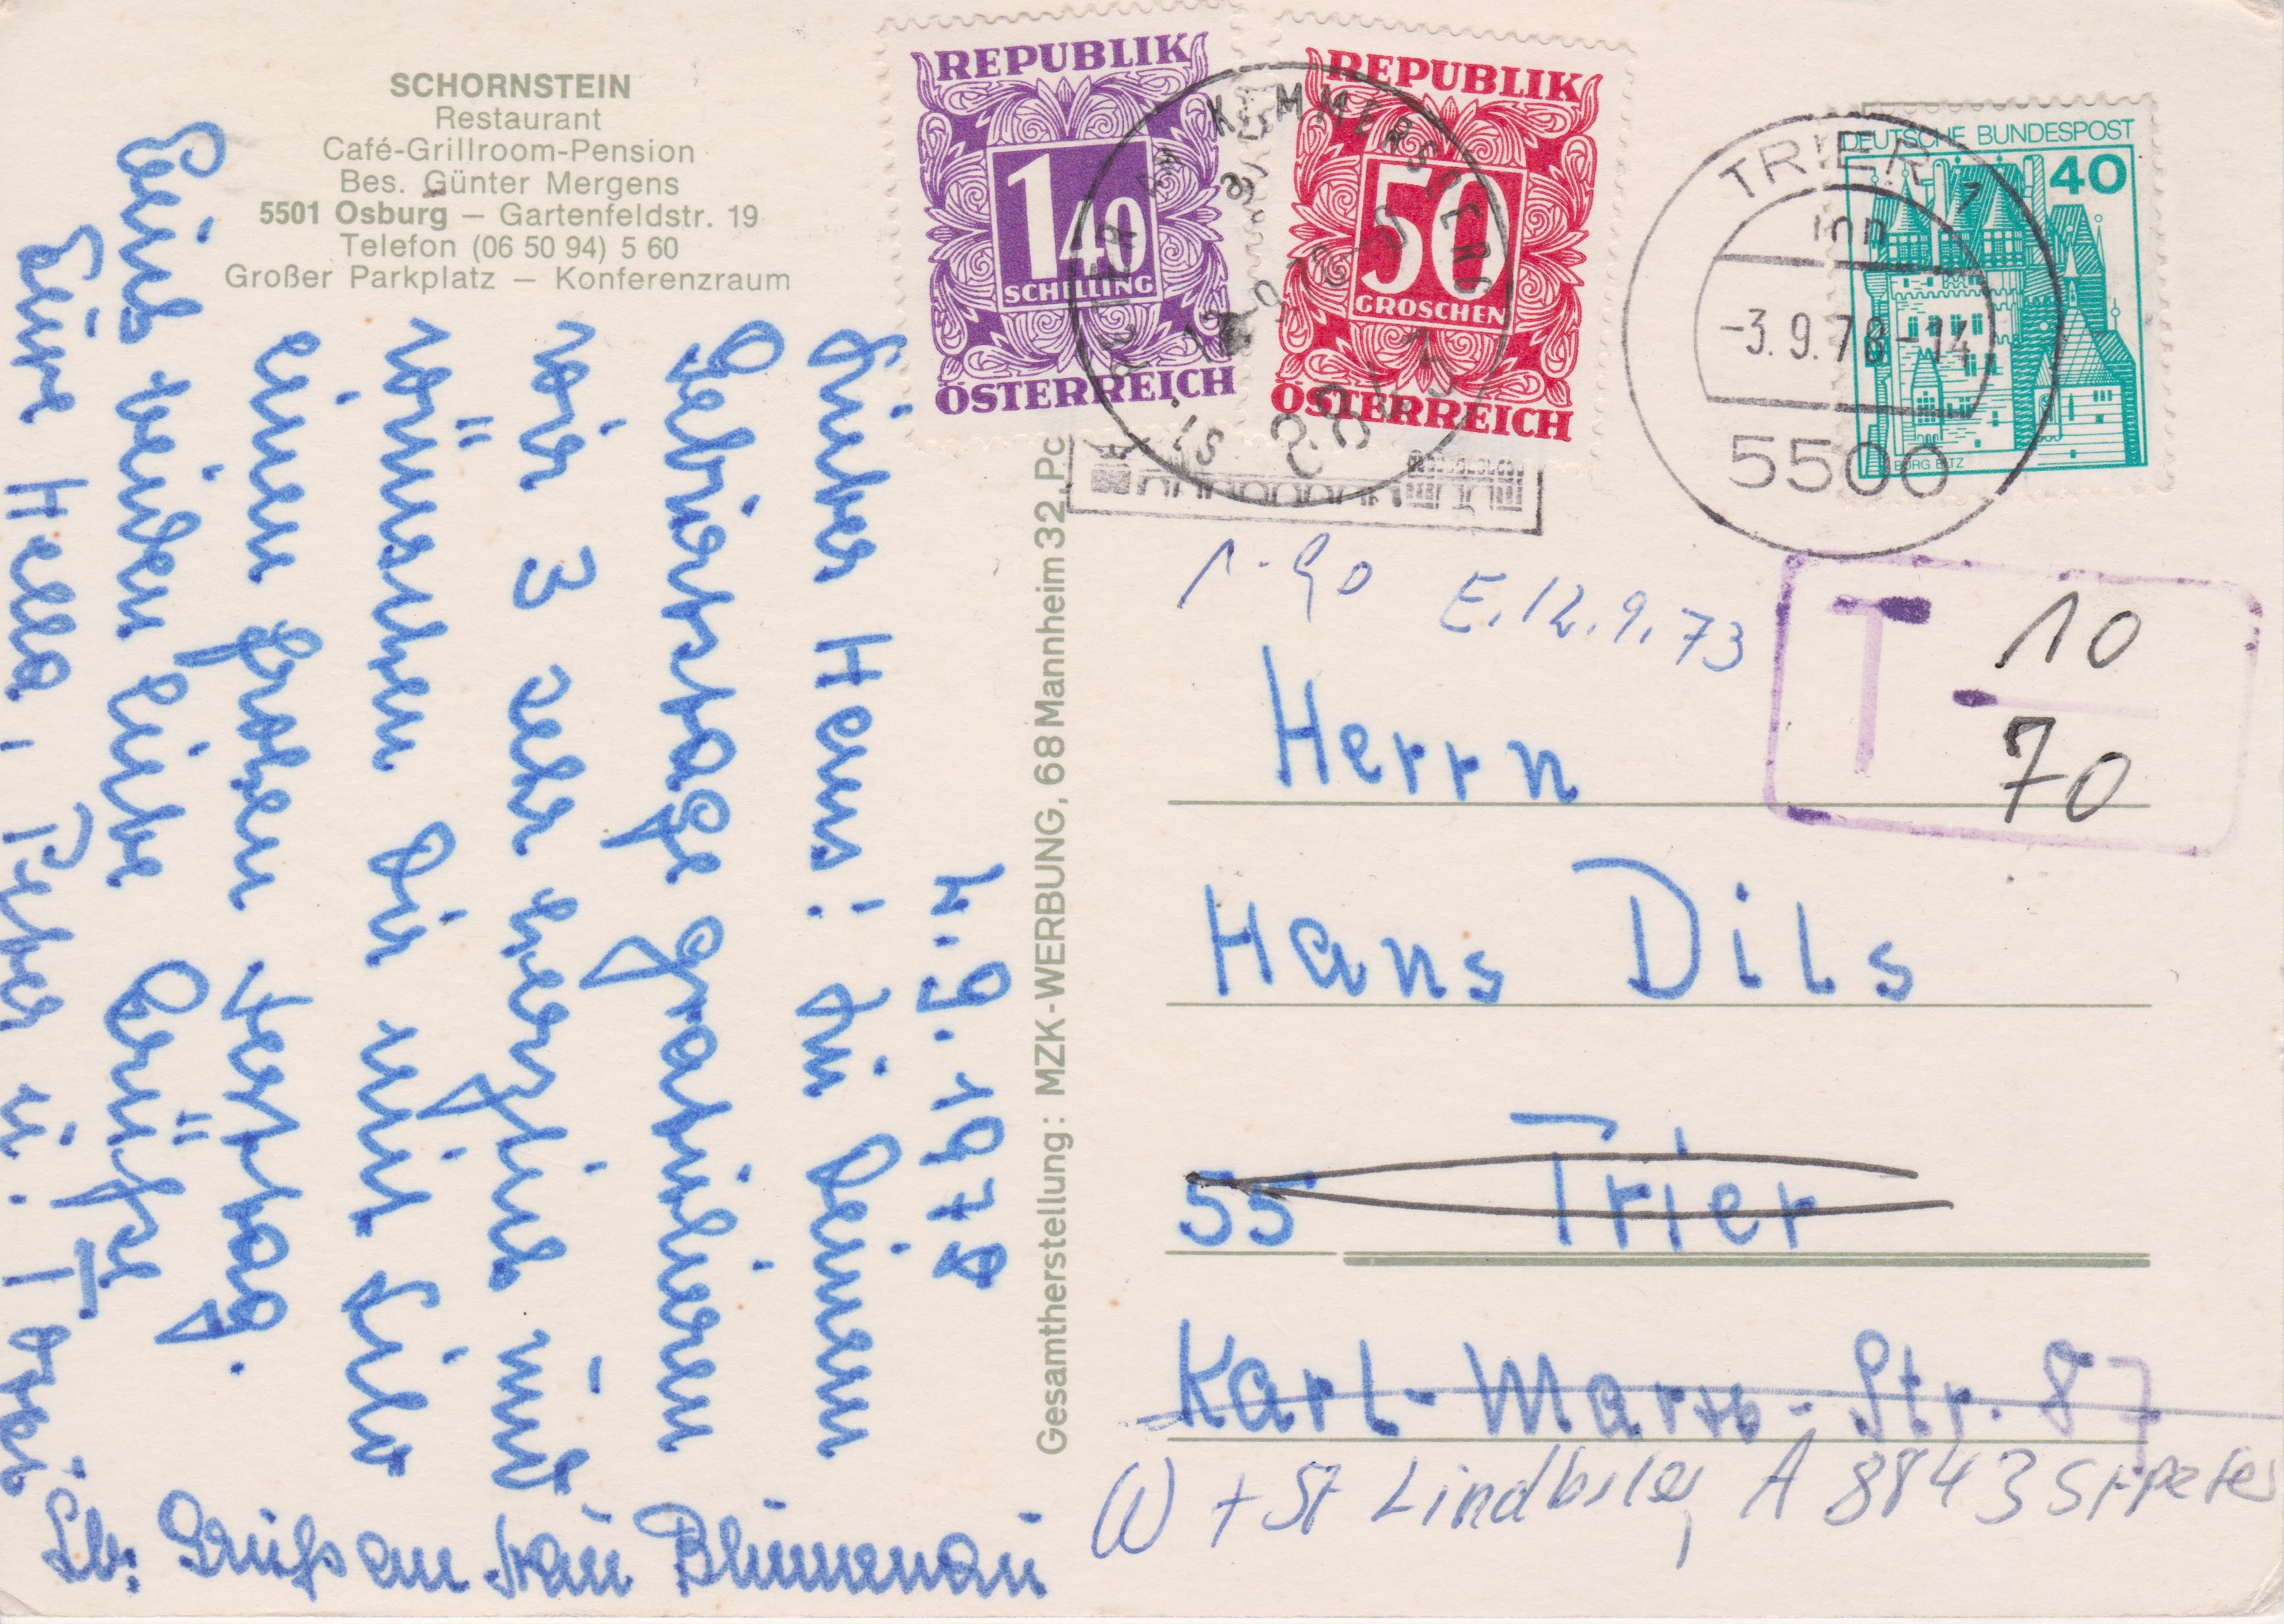 SCHORNSTEIN
Restaurant
Café-Grillroom-Pension
Bes. Günter Mergens
5501 Osburg – Gartenfeldstr. 19
Telefon (06 50 94) 5 60
Großer Parkplatz – Konferenzraum
REPUBLIK
1 40
SCHILLING
ÖSTERREICH
REPUBLIK
50
GROSCHEN
ÖSTERREICH
DEUTSCHE BUNDESPOST
40
BURG ELTZ
TRIER 1
-3.9.78-14
5500
T 10
70
1.90 E. 12.9.73
4.9.1978
Lieber Hans! Zu Deinem
Geburtstage gratulieren
wir 3 sehr herzlich und
wünschen Dir mit Silv
einen frohen Festtag.
Euch beiden liebe Grüße
Eure Hella, Peter u. Tovei
Lb. Gruß an Frau Blumenau
Gesamtherstellung: MZK-WERBUNG, 68 Mannheim 32, Pc
Herrn
Hans Dils
55 Trier
Karl-Marx-Str. 87
A 8843 St peter